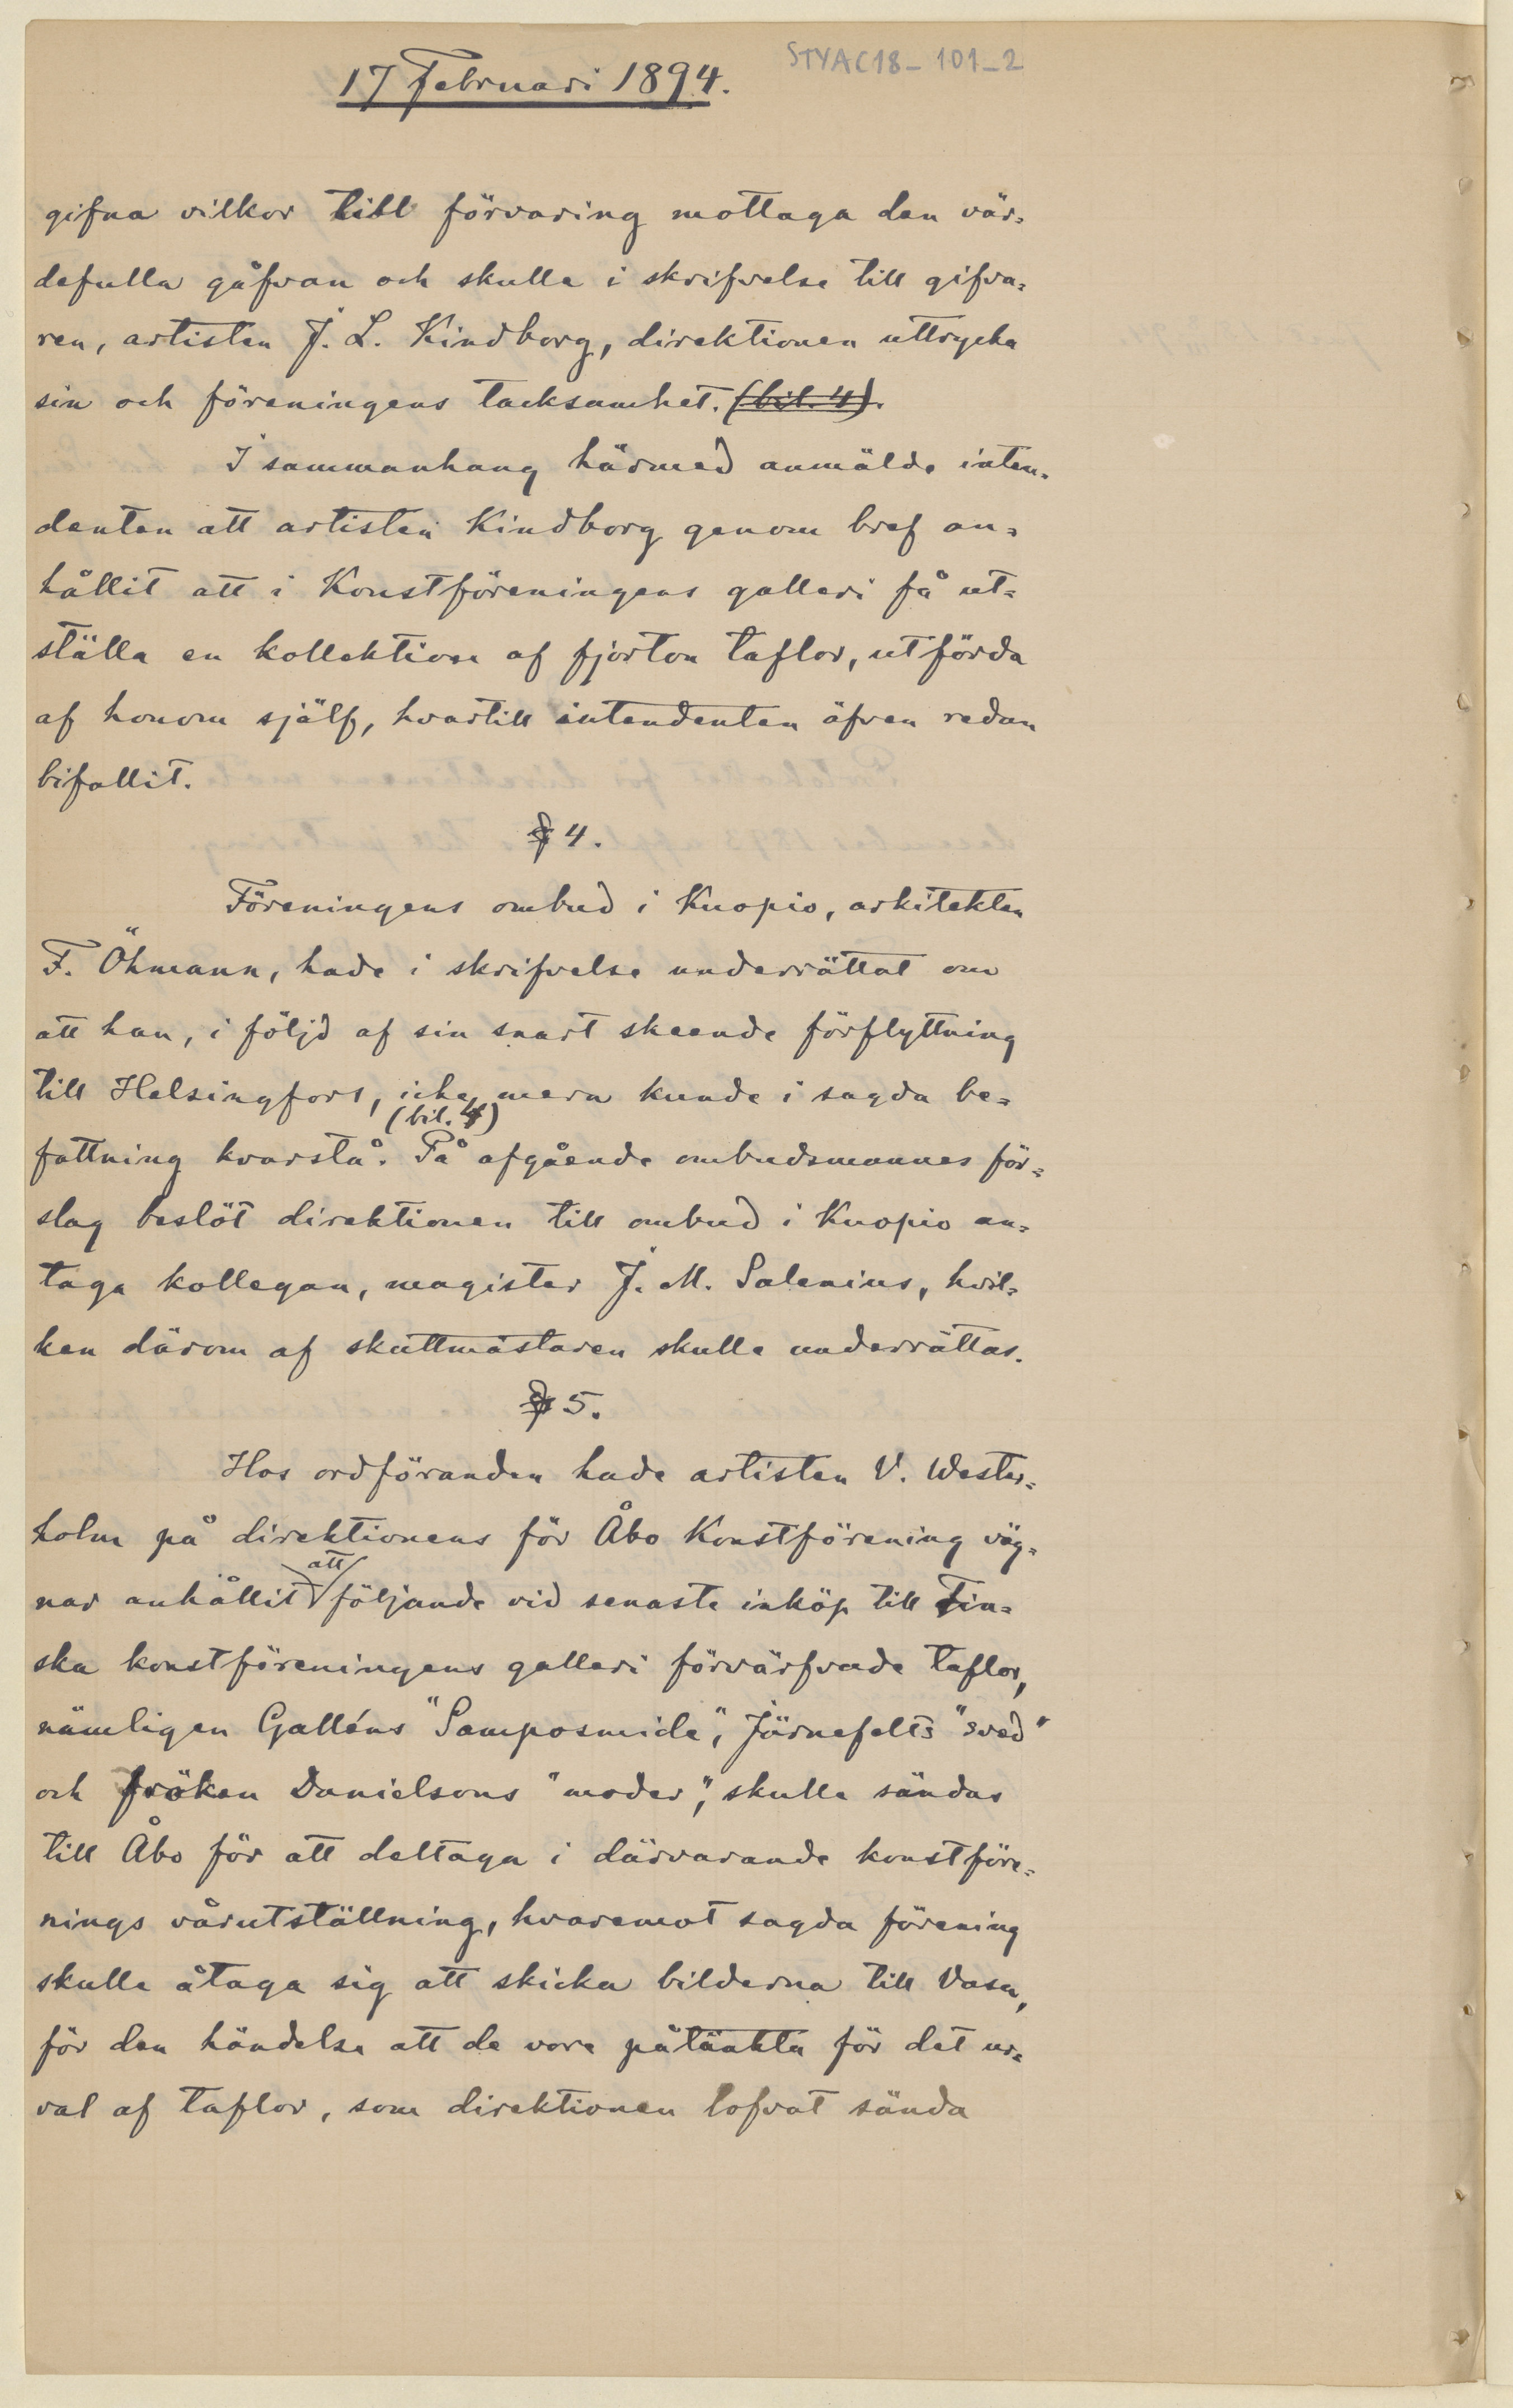 STYAC18-101-2
17 Februari 1894.
gifna vilkor till förvaring mottaga den vär=
defulla gåfvan och skulle i skrifvelse till gifva=
ren, artisten J. L. Kindborg, direktionen uttrycka
sin och föreningens tacksamhet. (bil. 4).
I sammanhang härmed anmälde inten=
denten att artisten Kindborg genom bref an=
hållit att i Konstföreningens galleri få ut=
ställa en kollektion af fjorton taflor, utförda
af honom själf, hvartill intendenten äfven redan
bifallit.
§ 4.
Föreningens ombud i Kuopio, arkitekten
F. Öhmann, hade i skrifvelse underrättat om
att han, i följd af sin snart skeende förflyttning
till Helsingfors, icke mera kunde i sagda be=
(bil. 4)
fattning kvarstå. På afgående ombudsmannes för=
slag beslöt direktionen till ombud i Kuopio an=
taga kollegan, magister J. M. Salenius, hvil=
ken därom af skattmästaren skulle underrättas.
§ 5.
Hos ordföranden hade artisten V. Wester=
holm på direktionens för Åbo Konstförening väg=
nar anhållit att följande vid senaste inköp till Fin=
ska konstföreningens galleri förvärfvade taflor,
nämligen Galléns "Samposmide", Järnefelts "sved"
och fröken Danielsons "moder", skulle sändas
till Åbo för att deltaga i därvarande konstföre=
nings vårutställning, hvaremot sagda förening
skulle åtaga sig att skicka bilderna till Vasa,
för den händelse att de vore påtänkta för det ur=
val af taflor, som direktionen lofvat sända